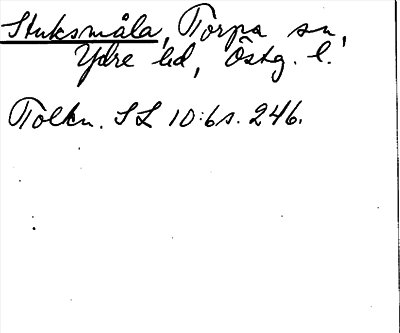 Stuksmåla, Torpa sn,
Ydre hd, Östg. l.
Tolkn. SL 10:6 s. 246.